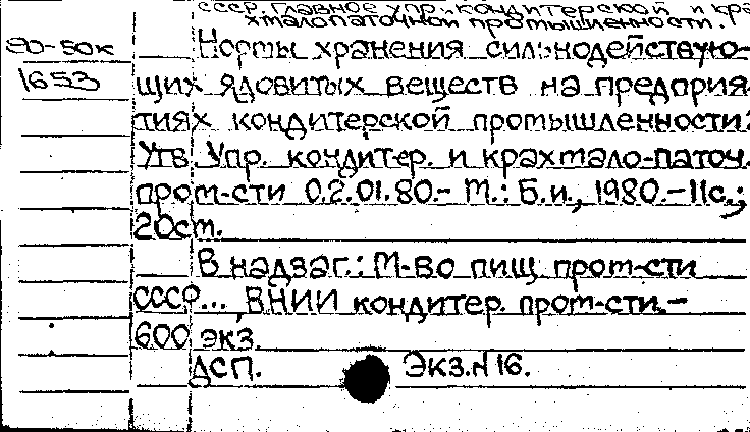 СССР. Главное упр. кондитерской и кра-
хмалопаточной промышленности.
80-50к Нормы хранения сильнодействую-
1653 щих ядовитых веществ на предприя-
тиях кондитерской промышленности:
Утв. Упр. кондитер. и крахмало-паточ.
пром-сти 02.01.80.- М.: Б.и., 1980.-11с.;
20см.
В надзаг.: М-во пищ. пром-сти
СССР..., ВНИИ кондитер. пром-сти.-
600 экз.
ДСП. Экз.N16.